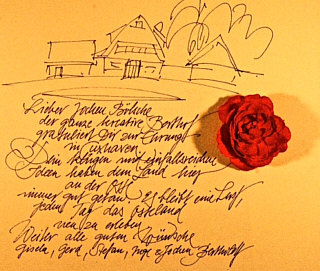 Lieber Jochen Bölsche
der ganze kreative Berthof
gratuliert Dir zur Ehrung
in Cuxhaven
Dein klugen und einfallsreichen
Ideen haben dem Land hier
an der Oste
immer gut getan Es bleibt eine Lust,
jeden Tag das Osteland
neu zu erleben
Weiter alle guten Wünsche
Gisela, Gerd, Stefan, Inge & Jochen